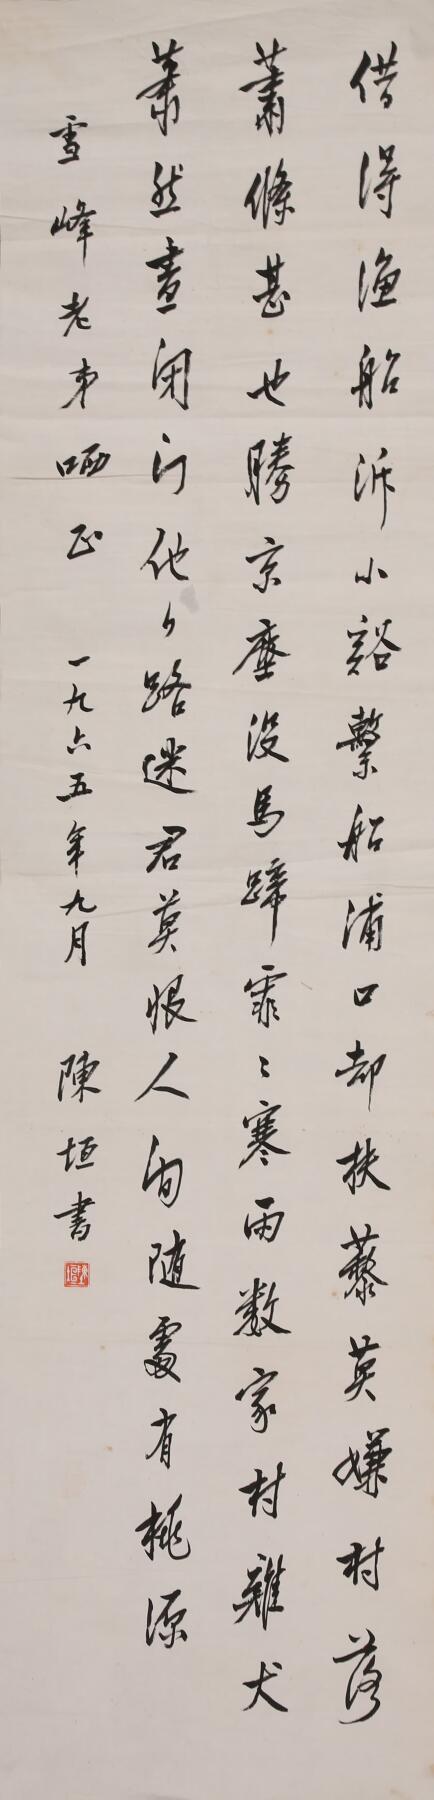 借得渔船泝小谿繫船浦口却扶藜莫嫌村落
蕭條甚也勝京塵没馬蹄霏〻寒雨数家村雞犬
萧然晝闭门他夕路迷君莫恨人间随處有桃源
雪峰老弟哂正 一九六五年九月 陳垣書